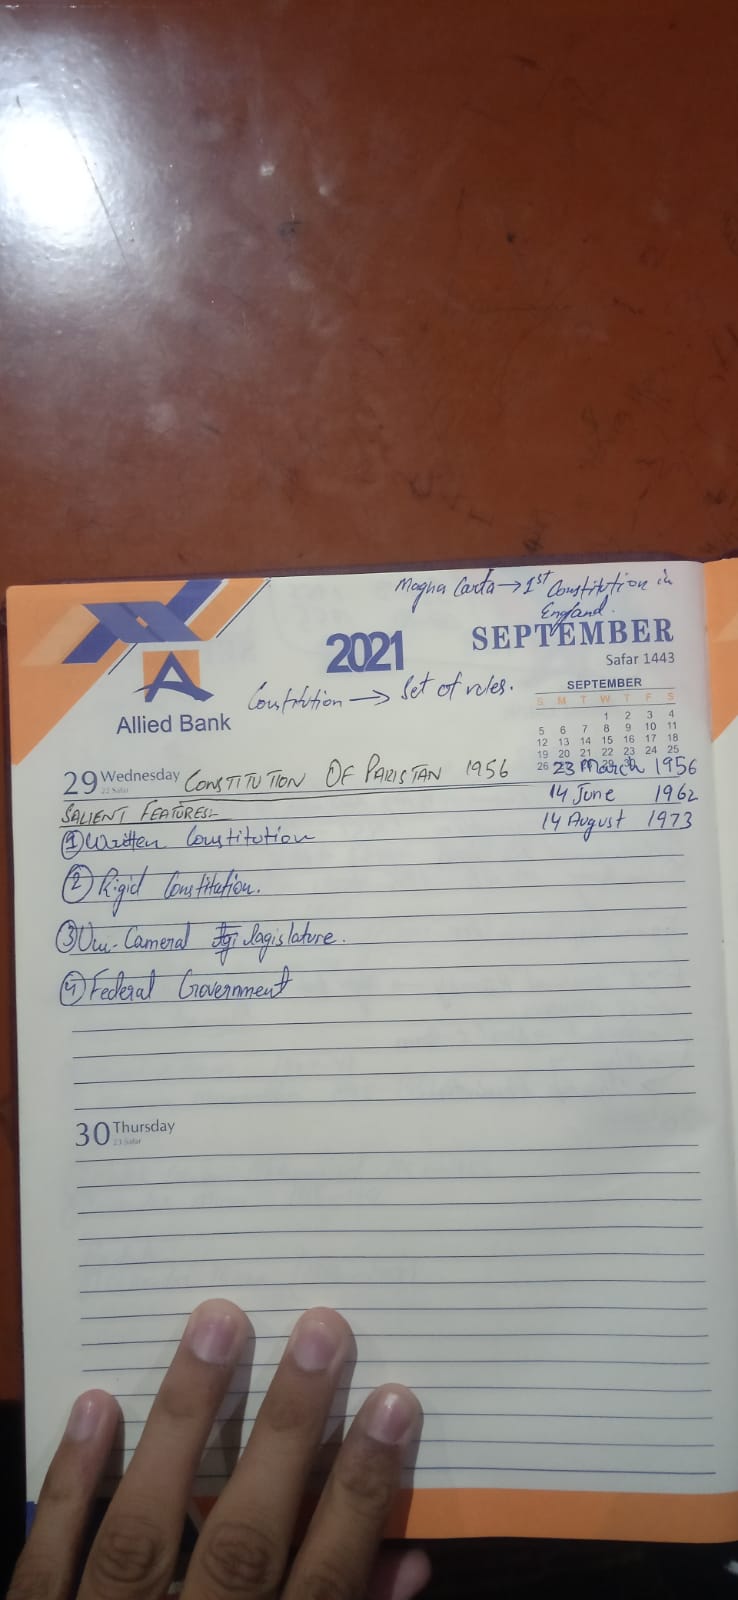 Magna Carta → 1st Constitution in
England.
2021
SEPTEMBER
Safar 1443
Allied Bank
Constitution → Set of rules.
SEPTEMBER
S M T W T F S
1 2 3 4
5 6 7 8 9 10 11
12 13 14 15 16 17 18
19 20 21 22 23 24 25
26
29 Wednesday
22 Safar
CONSTITUTION OF PAKISTAN 1956
23 March 1956
14 June 1962
14 August 1973
SALIENT FEATURES:-
① Written Constitution
② Rigid Constitution.
③ Uni-Cameral lagislature.
④ Federal Government
30 Thursday
23 Safar